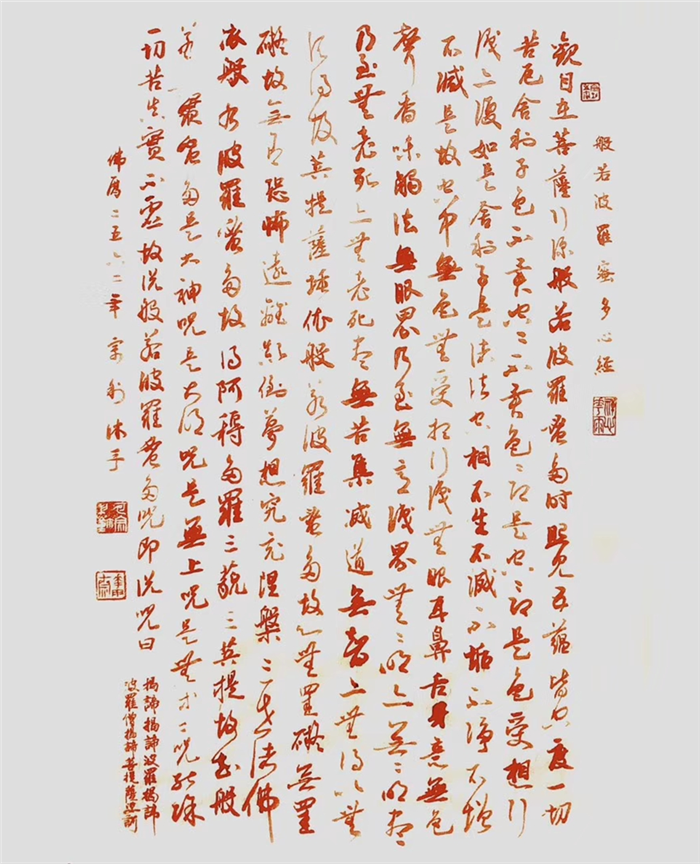 般若波羅蜜多心經
觀自在菩薩行深般若波羅蜜多時照見五蘊皆空度一切
苦厄舍利子色不異空〻不異色〻即是空〻即是色受想行
識亦復如是舍利子是諸法空相不生不滅不垢不淨不增
不減是故空中無色無受想行識無眼耳鼻舌身意無色
聲香味觸法無眼界乃至無意識界無〻明亦無〻明盡
乃至無老死亦無老死盡無苦集滅道無智亦無得以無
所得故菩提薩埵依般若波羅蜜多故心無罣礙無罣
礙故無有恐怖遠離顛倒夢想究竟涅槃三世諸佛
依般若波羅蜜多故得阿耨多羅三藐三菩提故知般
若波羅蜜多是大神咒是大明咒是無上咒是無等〻咒能除
一切苦真實不虛故說般若波羅蜜多咒即說咒曰
揭諦揭諦波羅揭諦
波羅僧揭諦菩提薩婆訶
佛曆二五六二年 宗利沐手